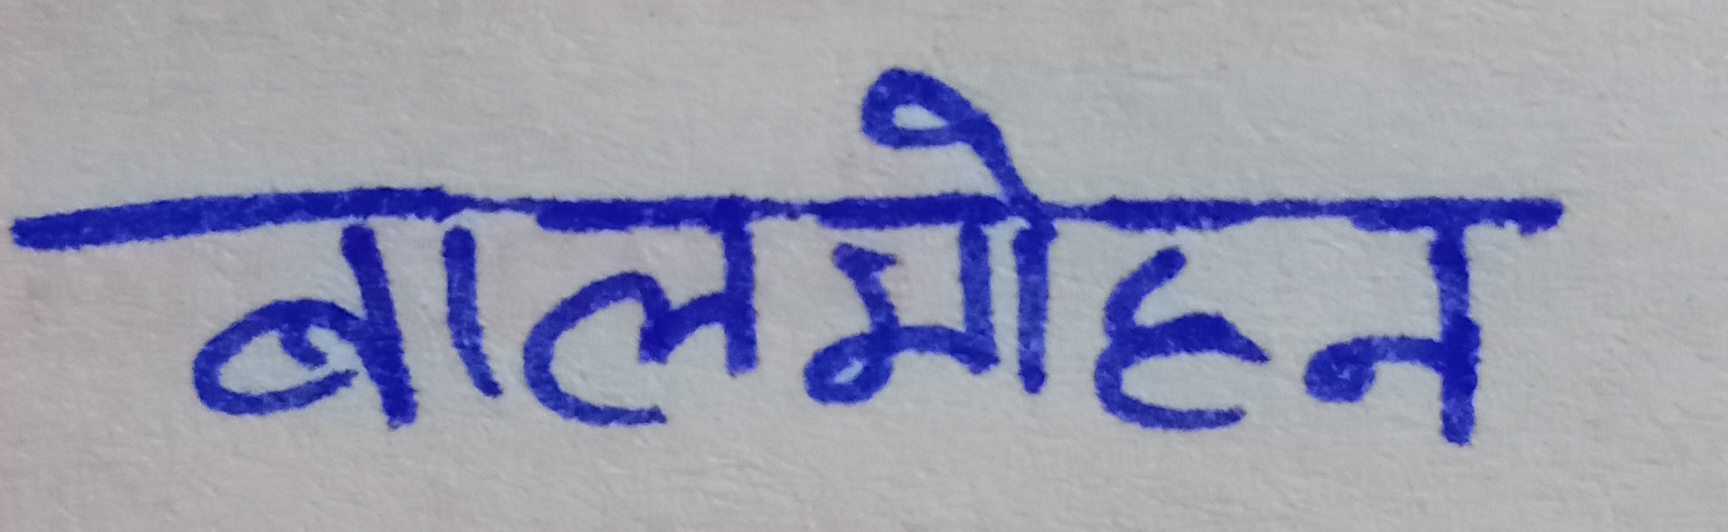 बालमोहन